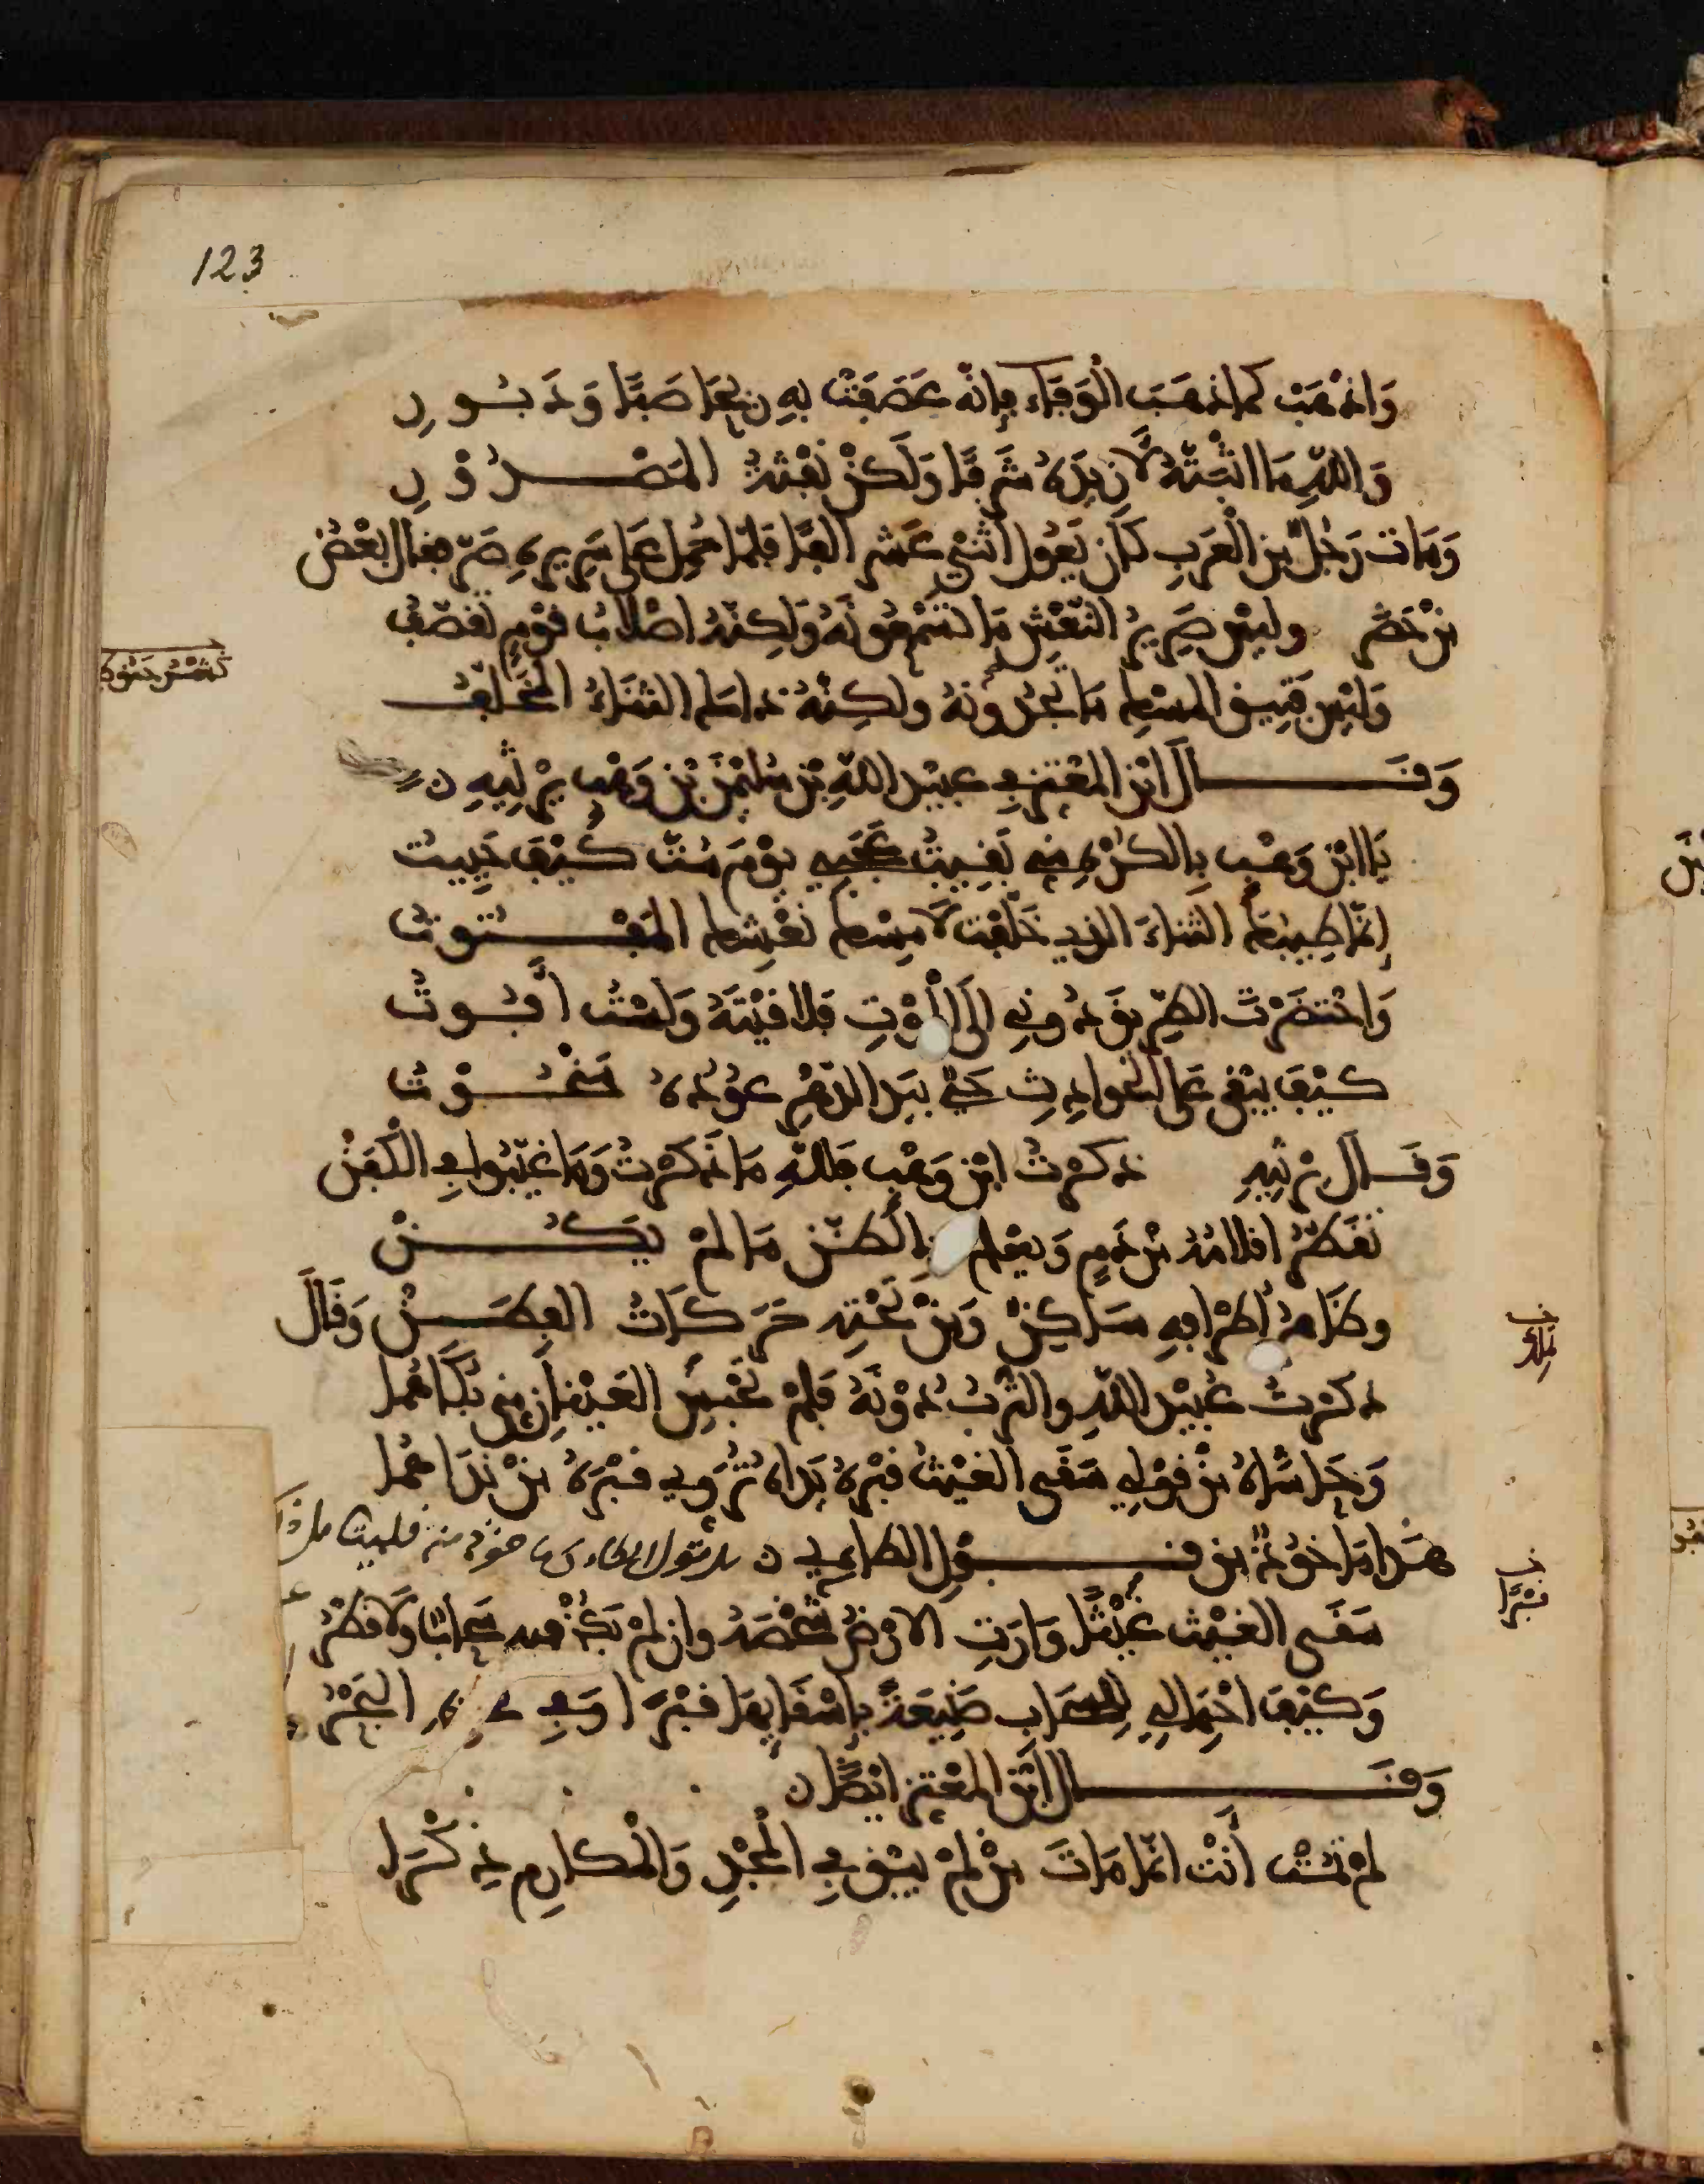 123
وَاذْهَبْ كَمَا ذَهَبَ الْوَفَاء فإنّه عَصَفَتْ بِهِ رِيحَا صَبًا وَدَبُورِ
وَاللهِ مَا ابّنتهُ لازيدَهُ شَرَفًا وَلَكِنْ نَفْثَةُ المَصْدُورِ
وَمَات رَجُلٌ مِن الْعَرَبِ كَانَ يَعُولُ اثْنَيْ عَشر الفًا فلمّا حُمِلَ عَلى سَرِيرِهِ صَرّ فقال بَعْضُ
مَنْ حَضَر وليسَ صَرِيرُ النّعْشِ مَا تَسْمَعُونَهُ وَلَكِنّهُ اصْلابُ قَوْمٍ تَقَصّفُ
وَلَيْسَ فَتِيقُ المسْكِ مَا تَجِدُونَهُ ولكِنّهُ ذاكَ الثنَاءُ المُخَلّفُ
وَقَال ابْنُ المعْتزّ في عبيد اللهِ بْن سُلَيْمٰنَ بْنِ وَهْبٍ يَرْثِيهِ
يَا ابْنَ وَهْبٍ بِالكُرْهِ مِنّي بَقِيتُ عَجَبِي يوْمَ مُتَّ كَيْفَ حَيِيتُ
إنّمَا طِيبُكَ الثناءُ الذي خَلّفْتَ لَا مِسْكُ نَعْشِكَ المَفْتُوتُ
وَاخْتَصَرْتَ الطريقَ دُونِي إلَى الْمَوْتِ فَلاقيْتَهُ وَلَسْتُ أَفُوتُ
كَيْفَ يَبْقَى عَلى الْحوادِثِ حَيٌّ بيَدِ الدّهْرِ عُودُهُ مَنْحُوتُ
وَقَالَ يَرْثِيهِ ذكَرْتُ ابْنَ وَهْبٍ فَلِلّهِ مَا ذَكَرْتُ وَمَا غَيّبُوا في الْكَفَنْ
تُقَطّرُ اقلامُهُ مِنْ دَمٍ وَيَعْلَم بالظّنّ مَا لمْ يَكُنْ
وظَاهِرُ أطْرَافِهِ سَاكِنٌ وَمِنْ تَحْتِهِ حَرَكَاتُ الفِطَنْ وَقَالَ
ذكَرْتُ عُبَيْدَ اللهِ والتّرْبُ دُونَهُ فَلمْ تَحْبِس العَيْنانِ مِنّي بُكَاهُمَا
وَحَاشَاهُ مِنْ قَوْلِي سَقَى الغَيْثُ قَبْرَهُ يَدَاهُ تُرَوّي قَبْرَهُ مِنْ نَدَاهُمَا
هَذا مَأخوذٌ مِن قَوْلِ الطائيّ
سَقَى الغَيْثُ غَيْثًا وَارَتِ الارْضُ شخْصَهُ وان لمْ يَكُنْ فيه سَحَابٌ وَلَا قَطْرُ
وَكَيْفَ احْتِمَالي لِلسّحَابِ صَنِيعَةً بِإسْقَايِهَا قَبْرًا وَفِي البَحْرُ
وَقَال ابْنُ المعْتزّ ايْضًا
لمْ تمُتْ أَنْتَ انّمَا مَاتَ مَنْ لمْ يُبْقِ في الْمَجْدِ وَالْمكارِم ذِكْرَا
خ
قَبْرًا